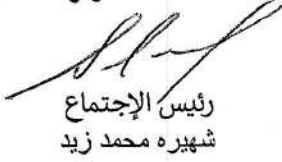 رئيس الإجتماع
شهيره محمد زيد